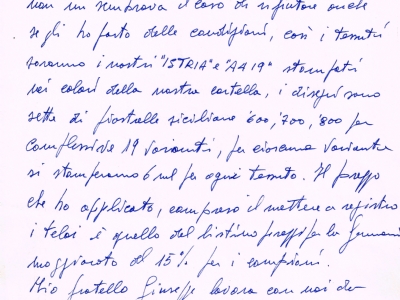 non mi sembrava il caso di rifiutare anche
se gli ho posto delle condizioni, così i tessuti
saranno i nostri "ISTRIA" e "AA19" stampati
nei colori della nostra cartella, i disegni sono
sette di piastrelle siciliane '600, '700, '800 per
complessive 19 varianti, per ciascuna variante
si stamperanno 6 ml per ogni tessuto. Il prezzo
che ho applicato, compreso il mettere a registro
i telai è quello del listino prezzi per la Germania
maggiorato del 15% per i campioni.
Mio fratello Giuseppe lavora con noi da